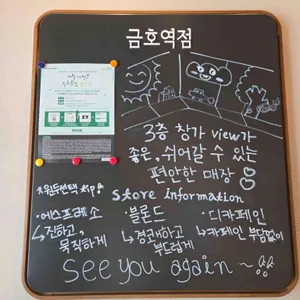 금호역점
3층 창가 view가
좋은, 쉬어갈 수 있는
편안한 매장
Store information
*원두선택 tip*
·에스프레소
↳진하고,
묵직하게
·블론드
↳경쾌하고
부드럽게
·디카페인
↳카페인 부담없이
See you again~